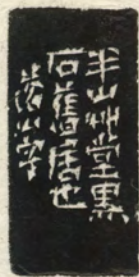 半山艸堂黑
石舊居也
山